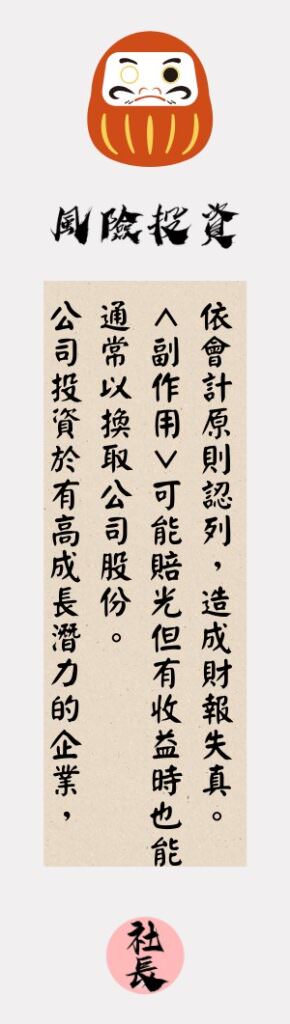 風險投資
公司投資於有高成長潛力的企業，
通常以換取公司股份。
＜副作用＞可能賠光但有收益時也能
依會計原則認列，造成財報失真。
社長